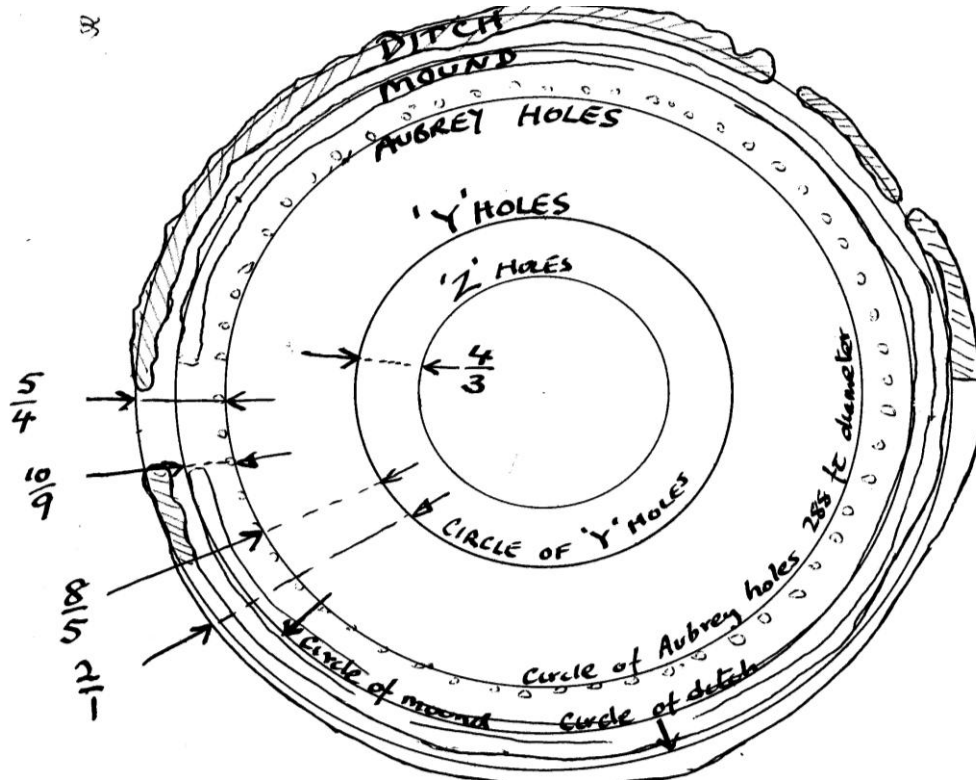 DITCH
MOUND
AUBREY HOLES
'Y' HOLES
'Z' HOLES
4
3
5
4
10
9
8
5
2
1
CIRCLE OF 'Y' HOLES
Circle of Aubrey holes 288 ft diameter
Circle of mound
Circle of ditch